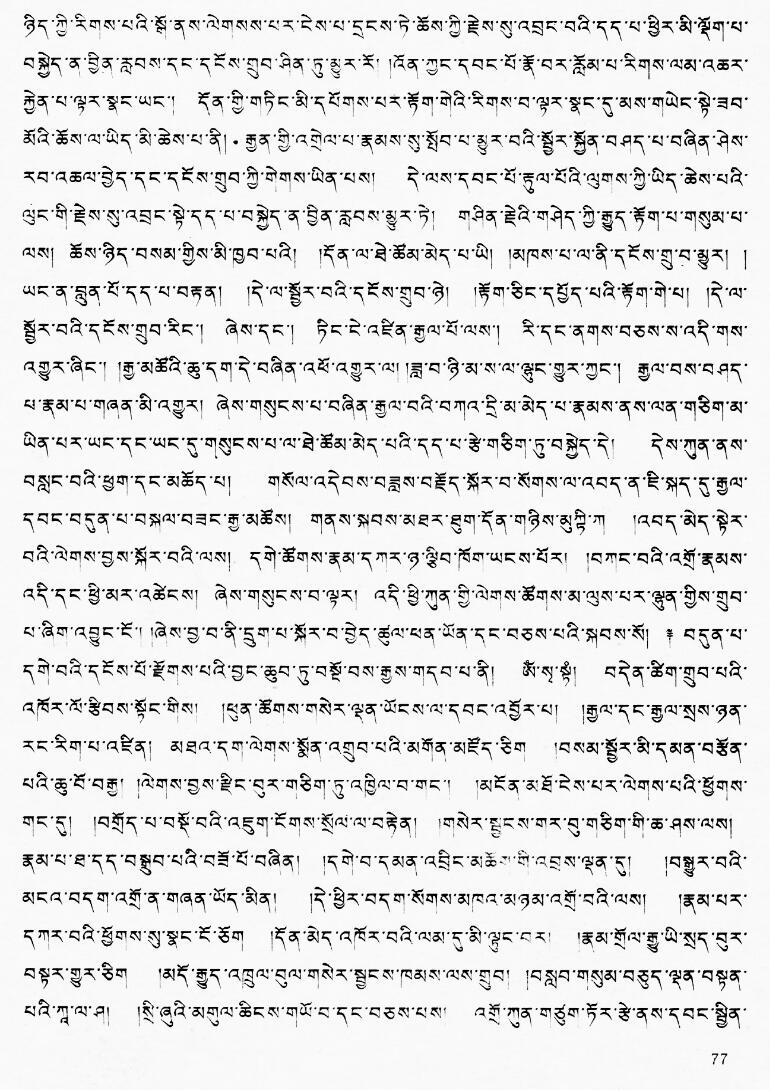 ཉིད་ཀྱི་རིགས་པའི་སྒོ་ནས་ལེགསས་པར་ངེས་པ་དྲངས་ཏེ་ཆོས་ཀྱི་རྗེས་སུ་འབྲང་བའི་དད་པ་ཕྱིར་མི་ལྡོག་པ་
བསྐྱེད་ན་བྱིན་རླབས་དང་དངོས་གྲུབ་ཤིན་ཏུ་མྱུར་རོ། །འོན་ཀྱང་དབང་པོ་རྣོ་བར་རློམ་པ་རིགས་ལམ་འཆར་
རྐྱེན་པ་ལྟར་སྣང་ཡང་། དོན་གྱི་གཏིང་མི་དཔོགས་པར་རྟོག་གེའི་རིགས་བ་ལྟར་སྣང་དུ་མས་གཡེང་སྟེ་ཟབ་
མོའི་ཆོས་ལ་ཡིད་མི་ཆེས་པ་ནི། རྒྱན་གྱི་འགྲེལ་པ་རྣམས་སུ་སྤོབ་པ་མྱུར་བའི་སྦྱོར་སྐྱོན་བཤད་པ་བཞིན་ཤེས་
རབ་འཆལ་བྱེད་དང་དངོས་གྲུབ་ཀྱི་གེགས་ཡིན་པས། དེ་ལས་དབང་པོ་རྟུལ་པོའི་ལུགས་ཀྱི་ཡིད་ཆེས་པའི་
ལུང་གི་རྗེས་སུ་འབྲང་སྟེ་དད་པ་བསྐྱེད་ན་བྱིན་རླབས་མྱུར་ཏེ། གཤིན་རྗེའི་གཤེད་ཀྱི་རྒྱུད་རྟོག་པ་གསུམ་པ་
ལས། ཆོས་ཉིད་བསམ་གྱིས་མི་ཁྱབ་པའི། །དོན་ལ་ཐེ་ཚོམ་མེད་པ་ཡི། །མཁས་པ་ལ་ནི་དངོས་གྲུབ་མྱུར། །
ཡང་ན་བླུན་པོ་དད་པ་བརྟན། །དེ་ལ་སྦྱོར་བའི་དངོས་གྲུབ་ཉེ། །རྟོག་ཅིང་དཔྱོད་པའི་རྟོག་གེ་པ། །དེ་ལ་
སྦྱོར་བའི་དངོས་གྲུབ་རིང་། ཞེས་དང་། ཏིང་ངེ་འཛིན་རྒྱལ་པོ་ལས། རི་དང་ནགས་བཅས་ས་འདི་གས་
འགྱུར་ཞིང་། །རྒྱ་མཚོའི་ཆུ་དག་དེ་བཞིན་འཕོ་འགྱུར་ལ། །ཟླ་བ་ཉི་མ་ས་ལ་ལྷུང་གྱུར་ཀྱང་། རྒྱལ་བས་བཤད་
པ་རྣམ་པ་གཞན་མི་འགྱུར། ཞེས་གསུངས་པ་བཞིན་རྒྱལ་བའི་བཀའ་དྲི་མ་མེད་པ་རྣམས་ནས་ལན་གཅིག་མ་
ཡིན་པར་ཡང་དང་ཡང་དུ་གསུངས་པ་ལ་ཐེ་ཚོམ་མེད་པའི་དད་པ་རྩེ་གཅིག་ཏུ་བསྐྱེད་དེ། དེས་ཀུན་ནས་
བསླང་བའི་ཕྱག་དང་མཆོད་པ། གསོལ་འདེབས་བཟླས་བརྗོད་སྐོར་བ་སོགས་ལ་འབད་ན་ཇི་སྐད་དུ་རྒྱལ་
དབང་བདུན་པ་བསྐལ་བཟང་རྒྱ་མཚོས། གནས་སྐབས་མཐར་ཐུག་དོན་གཉིས་མུཀྟི་ཀ །འབད་མེད་སྟེར་
བའི་ལེགས་བྱས་སྐོར་བའི་ལས། དགེ་ཚོགས་རྣམ་དཀར་ཉ་ལྕིབ་ཁོག་ཡངས་པོར། །བཀང་བའི་འགྲོ་རྣམས་
འདི་དང་ཕྱི་མར་འཚེངས། ཞེས་གསུངས་བ་ལྟར། འདི་ཕྱི་ཀུན་གྱི་ལེགས་ཚོགས་མ་ལུས་པར་ལྷུན་གྱིས་གྲུབ་
པ་ཞིག་འབྱུང་ངོ་། །ཞེས་བྱ་བ་ནི་དྲུག་པ་སྐོར་བ་བྱེད་ཚུལ་ཕན་ཡོན་དང་བཅས་པའི་སྐབས་སོ། ༈ བདུན་པ་
དགེ་བའི་དངོས་པོ་རྫོགས་པའི་བྱང་ཆུབ་ཏུ་བསྔོ་བས་རྒྱས་གདབ་པ་ནི། བདེན་ཚིག་གྲུབ་པའི་
འཁོར་ལོ་རྩིབས་སྟོང་གིས། །ཕུན་ཚོགས་གསེར་ལྡན་ཡོངས་ལ་དབང་འབྱོར་པ། །རྒྱལ་དང་རྒྱལ་སྲས་ཉན་
རང་རིག་པ་འཛིན། མཐའ་དག་ལེགས་སྨོན་འགྲུབ་པའི་མགོན་མཛོད་ཅིག །བསམ་སྦྱོར་མི་དམན་བརྩོན་
པའི་ཆུ་བོ་བརྒྱ། །ལེགས་བྱས་རྫིང་བུར་གཅིག་ཏུ་འཁྱིལ་བ་གང་། །མངོན་མཐོ་ངེས་པར་ལེགས་པའི་ཕྱོགས་
གང་དུ། །བགྲོད་པ་བསྔོ་བའི་འཇུག་ངོགས་སྲོལ་ལ་བརྟེན། །གསེར་སྦྱངས་གར་བུ་གཅིག་གི་ཆ་ཤས་ལས།
རྣམ་པ་ཐ་དད་བསྒྲུབ་པའི་བཟོ་པོ་བཞིན། །དགེ་བ་དམན་འབྲིང་མཆོག་གི་འབྲས་ལྡན་དུ། །བསྒྱུར་བའི་
མངའ་བདག་འགྲོ་ན་གཞན་ཡོད་མིན། །དེ་ཕྱིར་བདག་སོགས་མཁའ་མཉམ་འགྲོ་བའི་ལས། །རྣམ་པར་
དཀར་བའི་ཕྱོགས་སུ་སྣང་ངོ་ཅོག །དོན་མེད་འཁོར་བའི་ལམ་དུ་མི་ལྟུང་བར། །རྣམ་གྲོལ་རྒྱུ་ཡི་སྲད་བུར་
བསྟར་གྱུར་ཅིག །མདོ་རྒྱུད་འཁྲུལ་བུལ་གསེར་སྦྱངས་ཁམས་ལས་གྲུབ། །བསླབ་གསུམ་བཅུད་ལྡན་བསྟན་
པའི་ཀཱ་ལ་ཤ། །སྲི་ཞུའི་མགུལ་ཆིངས་གཡོ་བ་དང་བཅས་པས། འགྲོ་ཀུན་གཙུག་ཏོར་རྩེ་ནས་དབང་སྦྱིན་
77